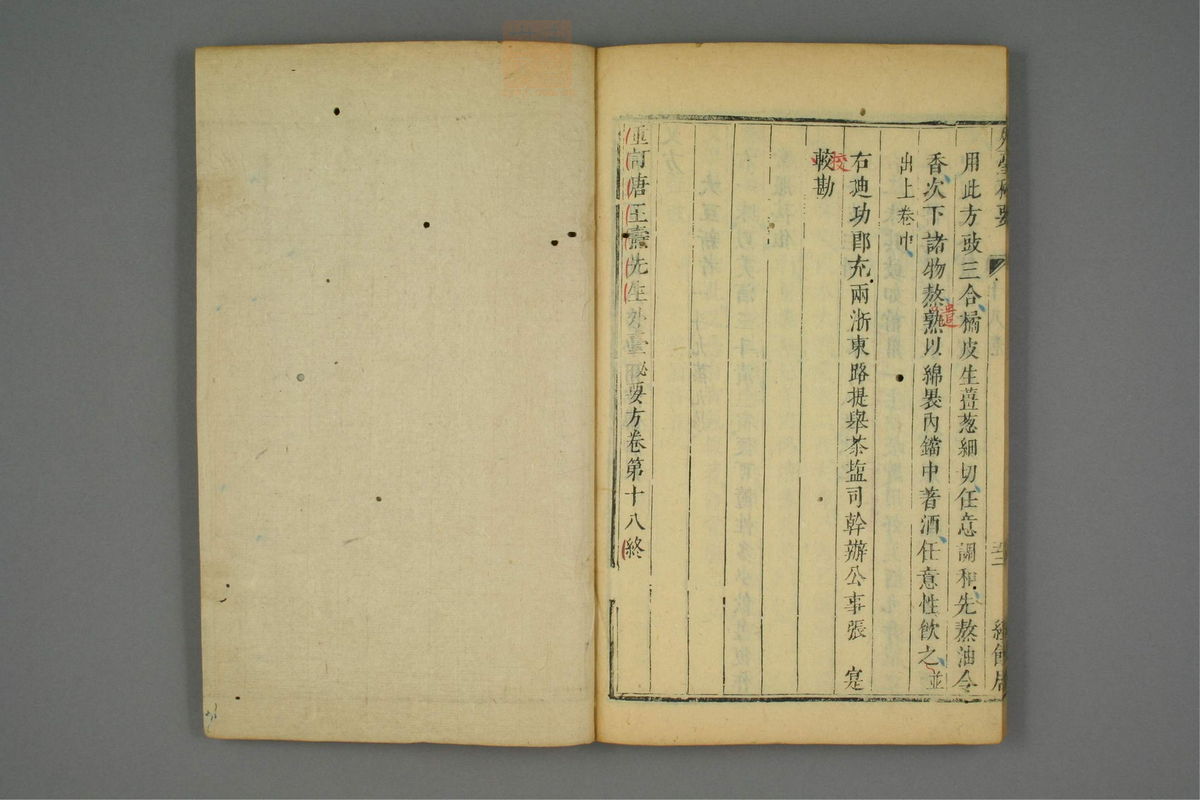 外臺秘要
十八卷
用此方豉三合橘皮生薑葱細切任意調和先熬油令
香次下諸物熬熟以綿褁內鐺中著酒任意性飲之並
遣
出上卷中
右迪功郎充兩浙東路提舉茶塩司幹辦公事張 寔
較勘
校
重訂唐王燾先生外臺秘要方卷第十八終